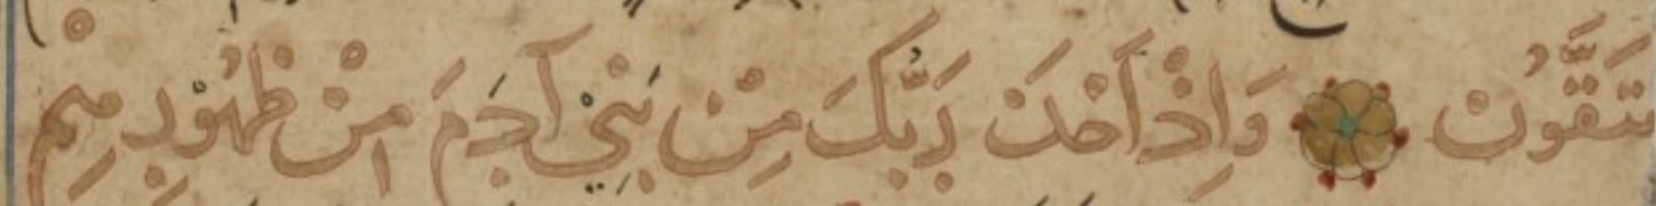 تَتَّقُونَ وَاِذْ اَخَذَ رَبُّكَ مِنْ بَنِيْ آدَمَ مِنْ ظُهُوْرِهِمْ